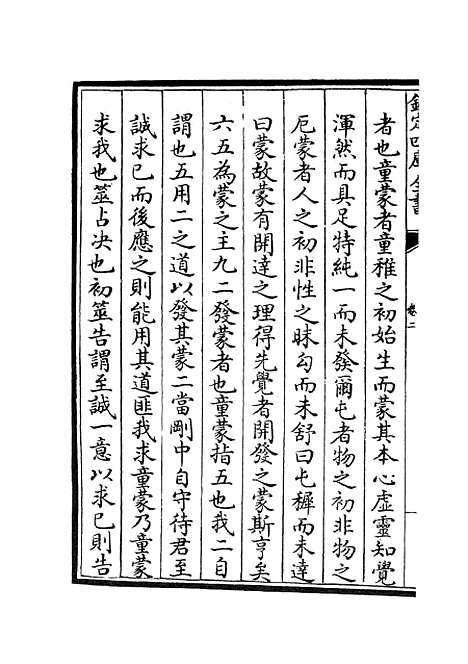 欽定四庫全書
卷二
者也童蒙者童稚之初始生而蒙其本心虛靈知覺
渾然而具足特純一而未發爾屯者物之初非物之
厄蒙者人之初非性之昧勾而未舒曰屯穉而未達
曰蒙故蒙有開達之理得先覺者開發之蒙斯亨矣
六五為蒙之主九二發蒙者也童蒙指五也我二自
謂也五用二之道以發其蒙二當剛中自守待君至
誠求已而後應之則能用其道匪我求童蒙乃童蒙
求我也筮占決也初筮告謂至誠一意以求已則告